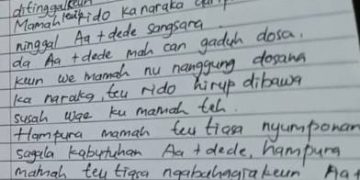 ditinggalkeun
Mamah leuh rido ka naraka
ninggal Aa + dede sangsara
da Aa + dede mah can gaduh dosa.
keun we mamah nu nanggung dosana
ka naraka, teu rido hirup dibawa
susah wae ku mamah teh.
Hampura mamah teu tiasa nyumponan
sagala kabutuhan Aa + dede, hampura
mamah teu tiasa ngabahagiakeun Aa +